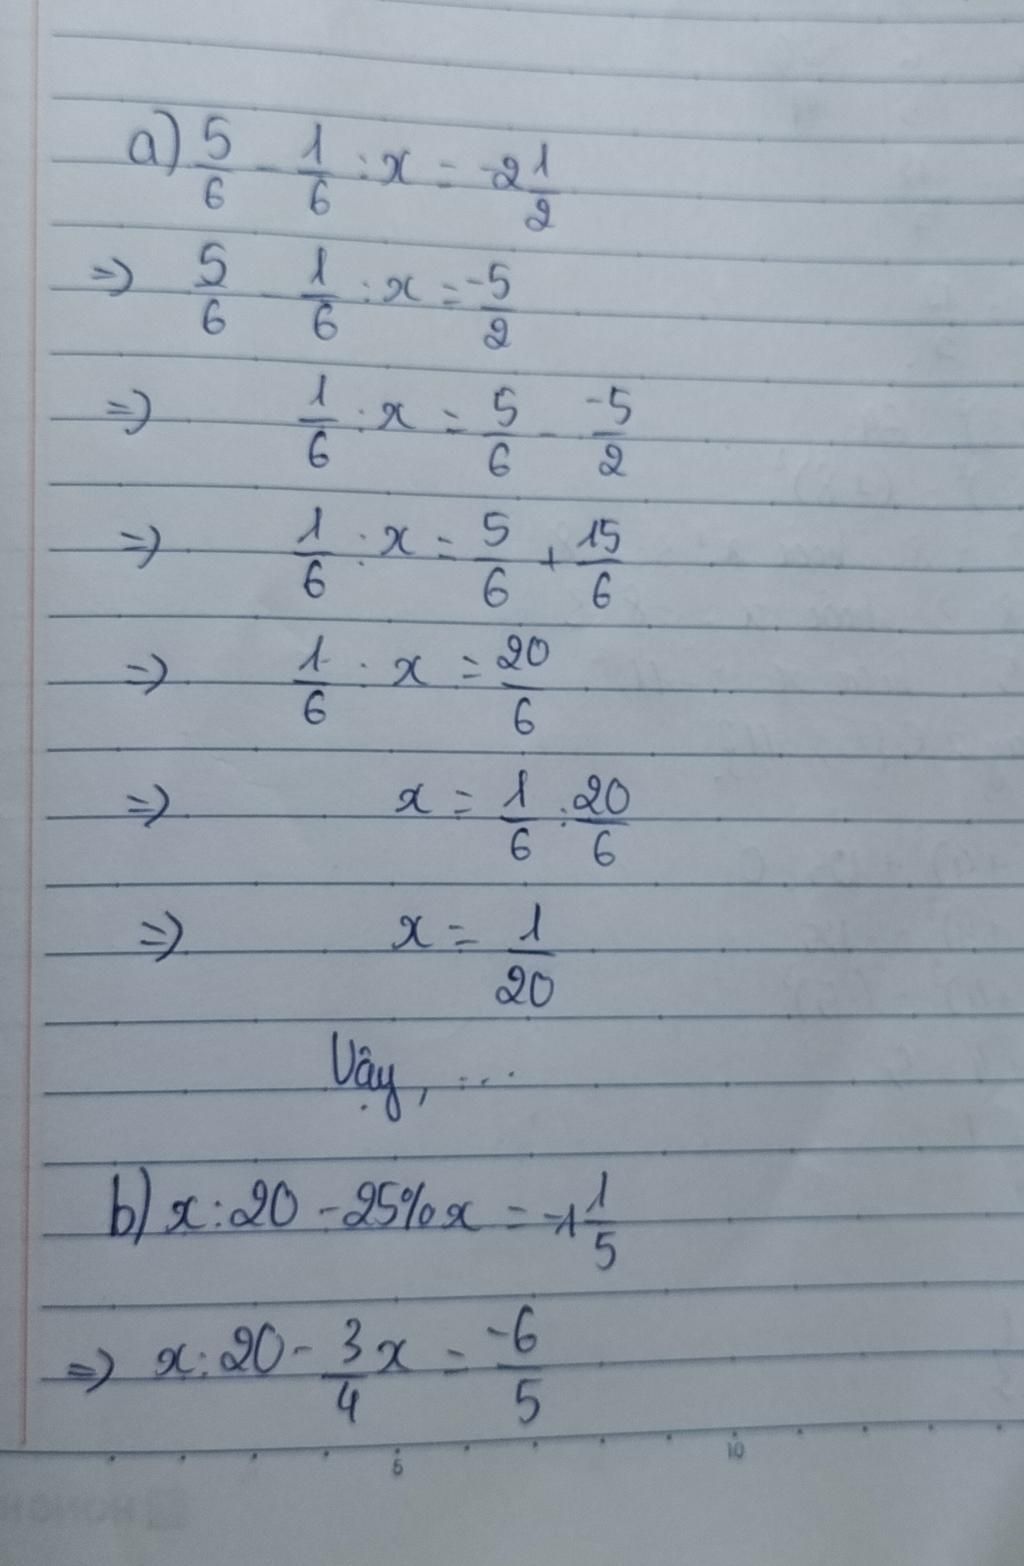 a) 5/6 - 1/6 : x = -2 1/2
=> 5/6 - 1/6 : x = -5/2
=> 1/6 : x = 5/6 - -5/2
=> 1/6 : x = 5/6 + 15/6
=> 1/6 : x = 20/6
=> x = 1/6 : 20/6
=> x = 1/20
Vậy, ...
b) x : 20 - 25% x = -1 1/5
=> x : 20 - 3/4 x = -6/5
6
10